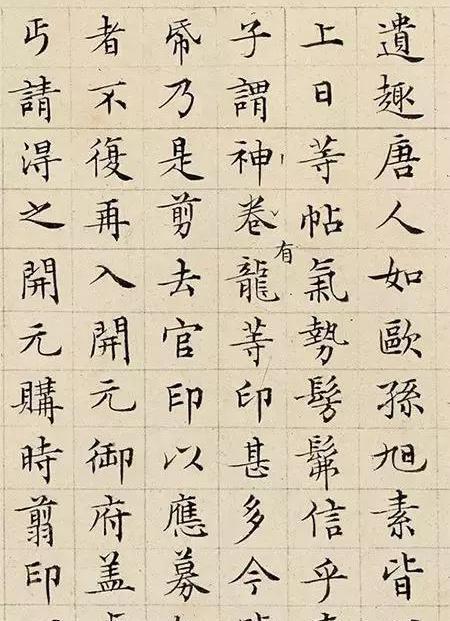 遺趣唐人如歐孫旭素皆
上日等帖氣勢髣髴信乎
子謂神卷有龍等印甚多今
帋乃是剪去官印以應募
者不復再入開元御府盖
丐請得之開元購時翦印